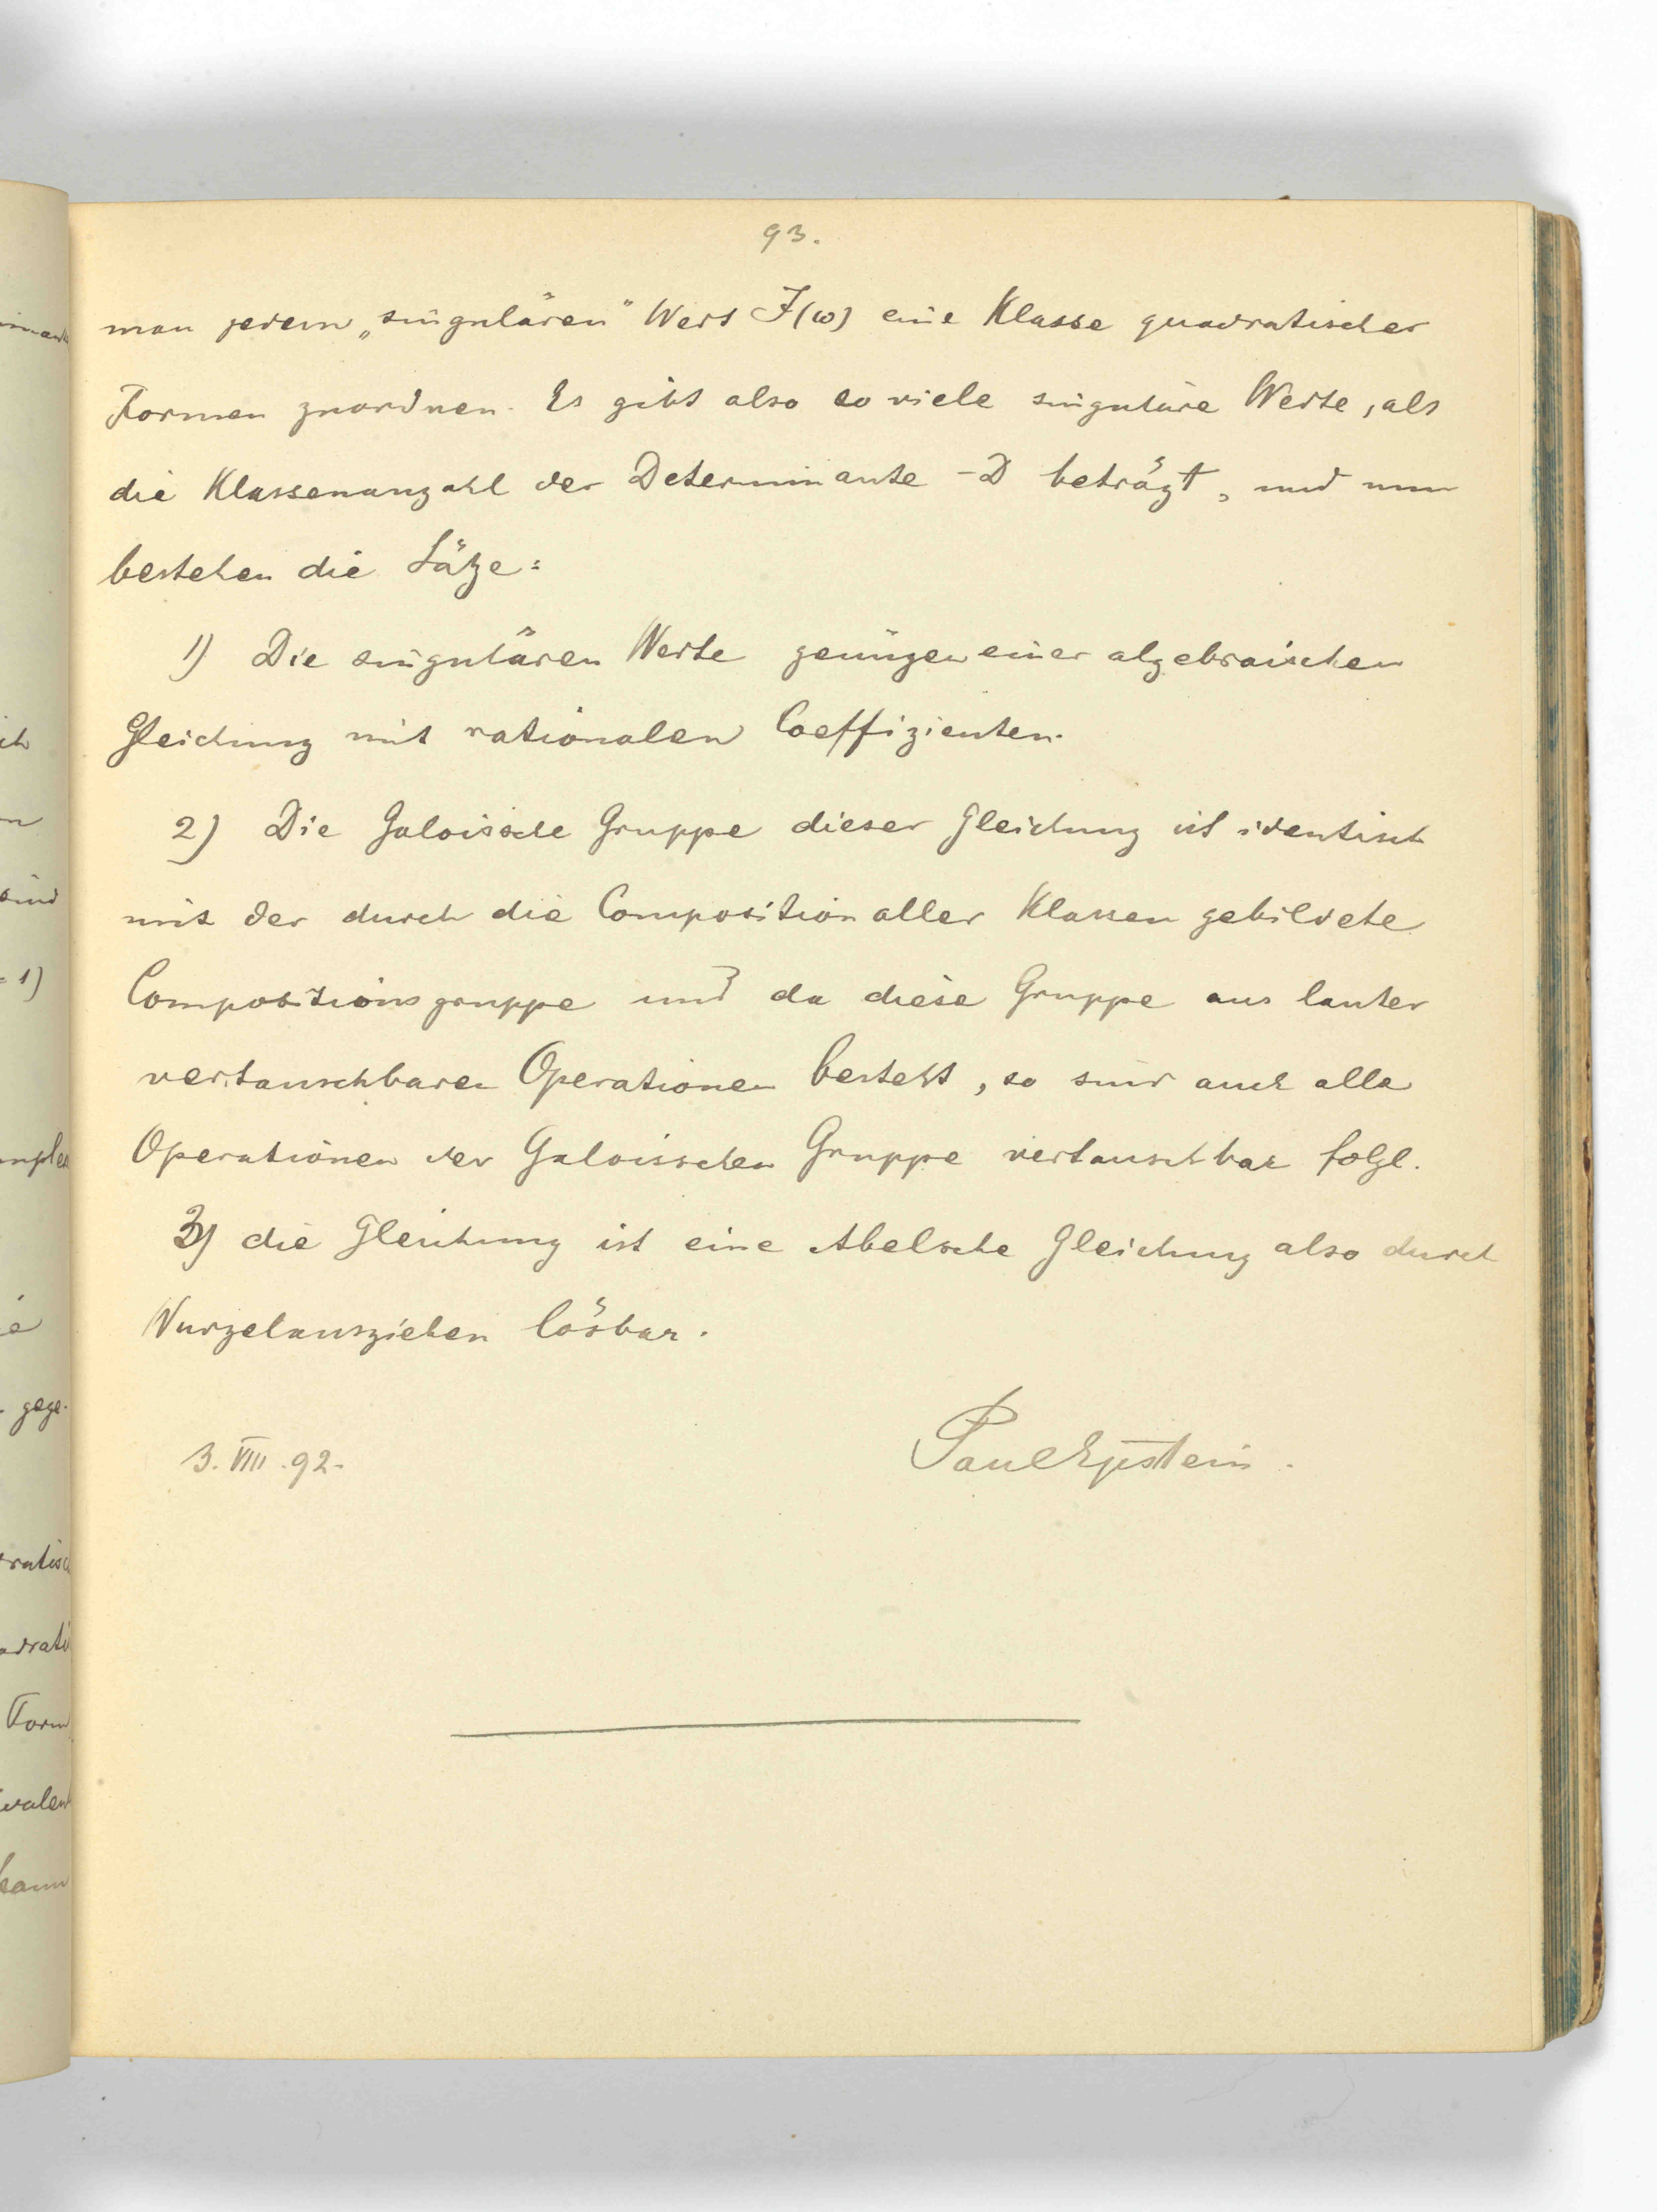 93.
man jedem „singulären" Wert J(ω) eine Klasse quadratischer
Formen zuordnen. Es gibt also so viele singuläre Werte, als
die Klassenanzahl der Determinante -D beträgt, und nun
bestehen die Sätze:
1) Die singulären Werte genügen einer algebraischen
Gleichung mit rationalen Coeffizienten.
2) Die Galoissche Gruppe dieser Gleichung ist identisch
mit der durch die Composition aller Klassen gebildete
Compositionsgruppe und da diese Gruppe aus lauter
vertauschbaren Operationen besteht, so sind auch alle
Operationen der Galoisschen Gruppe vertauschbar folgl.
3) die Gleichung ist eine Abelsche Gleichung also durch
Wurzelausziehen lösbar.
3. VIII. 92.
Paul Epstein.
ich
sind
= 1)
gege-
Form
kann